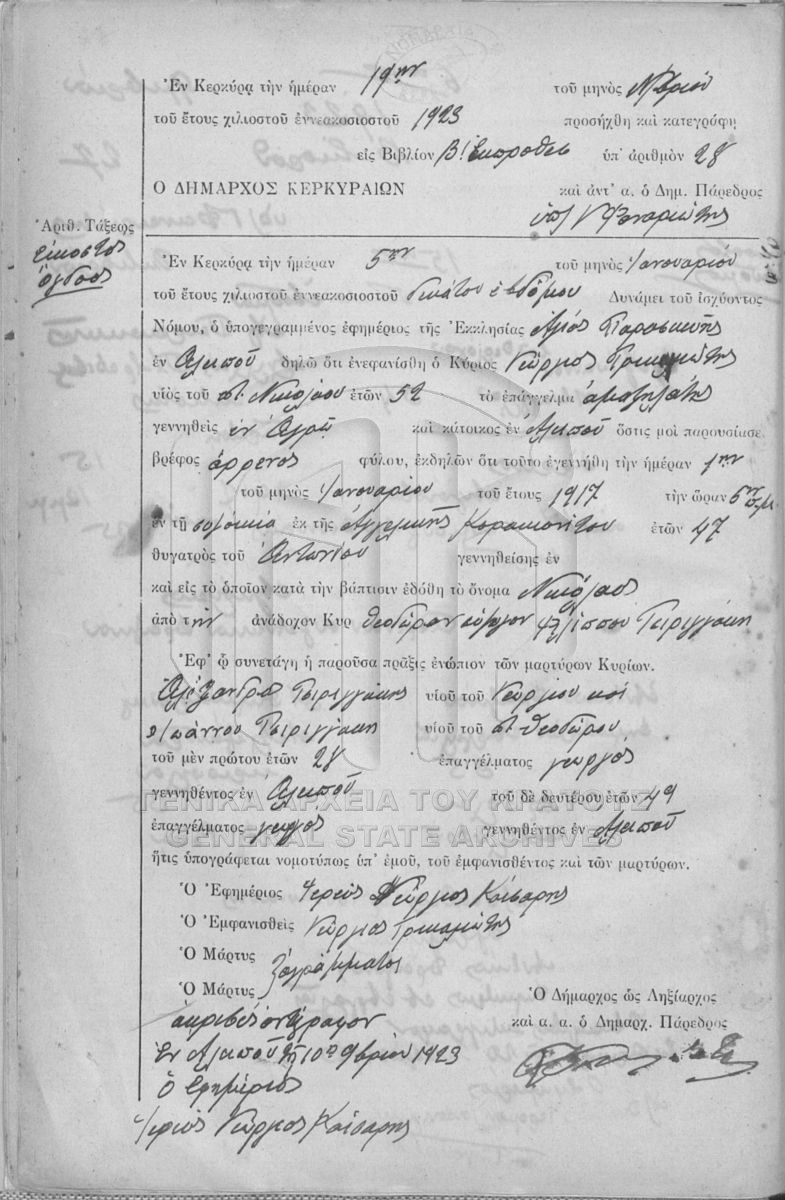 Ἐν Κερκύρᾳ τὴν ἡμέραν 19ην τοῦ μηνὸς Νβρίου
τοῦ ἔτους χιλιοστοῦ ἐννεακοσιοστοῦ 1923 προσήχθη καὶ κατεγράφη
εἰς Βιβλίον Β! Ἐκπροθέσ ὑπ' ἀριθμὸν 28
Ο ΔΗΜΑΡΧΟΣ ΚΕΡΚΥΡΑΙΩΝ καὶ ἀντ' α. ὁ Δημ. Πάρεδρος
Ἀριθ. Τάξεως
εἰκοστὸς
ὄγδοος
Ἐν Κερκύρᾳ τὴν ἡμέραν 5ην τοῦ μηνὸς Ἰανουαρίου
τοῦ ἔτους χιλιοστοῦ ἐννεακοσιοστοῦ δεκάτου ἑβδόμου Δυνάμει τοῦ ἰσχύοντος
Νόμου, ὁ ὑπογεγραμμένος ἐφημέριος τῆς Ἐκκλησίας Ἁγίας Παρασκευῆς
ἐν Ἀλεποῦ δηλῶ ὅτι ἐνεφανίσθη ὁ Κύριος Γεώργιος Τρικαλιώτης
υἱὸς τοῦ ποτ. Νικολάου ἐτῶν 52 τὸ ἐπάγγελμα ἁμαξηλάτης
γεννηθεὶς ἐν καὶ κάτοικος ἐν Ἀλεποῦ ὅστις μοὶ παρουσίασε
βρέφος ἄρρενος φύλου, ἐκδηλῶν ὅτι τοῦτο ἐγεννήθη τὴν ἡμέραν 1ην
τοῦ μηνὸς Ἰανουαρίου τοῦ ἔτους 1917 τὴν ὥραν 6ην π.μ.
ἐν τῇ ἐκ τῆς Ἀγγελικῆς ἐτῶν 47
θυγατρὸς τοῦ Ἀντωνίου γεννηθείσης ἐν
καὶ εἰς τὸ ὁποῖον κατὰ τὴν βάπτισιν ἐδόθη τὸ ὄνομα Νικόλαος
ἀπὸ τὴν ἀνάδοχον Κυρ Θεοδώραν σύζυγον Φιλίππου Τσιριγγάκη
Ἐφ' ᾧ συνετάγη ἡ παροῦσα πρᾶξις ἐνώπιον τῶν μαρτύρων Κυρίων.
Ἀλεξάνδρου Τσιριγγάκης υἱοῦ τοῦ Γεωργίου καὶ
Ἰωάννου Τσιριγγάκη υἱοῦ τοῦ ποτ. Θεοδώρου
τοῦ μὲν πρώτου ἐτῶν 28 ἐπαγγέλματος γεωργός
γεννηθέντος ἐν Ἀλεποῦ τοῦ δὲ δευτέρου ἐτῶν 49
ΓΕΝΙΚΑ ΑΡΧΕΙΑ ΤΟΥ ΚΡΑΤΟΥΣ
ἐπαγγέλματος γεωργός γεννηθέντος ἐν Ἀλεποῦ
GENERAL STATE ARCHIVES
ἥτις ὑπογράφεται νομοτύπως ὑπ' ἐμοῦ, τοῦ ἐμφανισθέντος καὶ τῶν μαρτύρων.
Ὁ Ἐφημέριος Ἱερεὺς Γεώργιος Καίσαρης
Ὁ Ἐμφανισθεὶς Γεώργιος Τρικαλιώτης
Ὁ Μάρτυς ἀγράμματοι
Ὁ Μάρτυς
Ὁ Δήμαρχος ὡς Ληξίαρχος
καὶ α. α. ὁ Δημαρχ. Πάρεδρος
ἀκριβὲς ἀντίγραφον
Ἐν Ἀλεποῦ τῇ 10η 9βρίου 1923
ὁ Ἐφημέριος
Ἱερεὺς Γεώργιος Καίσαρης